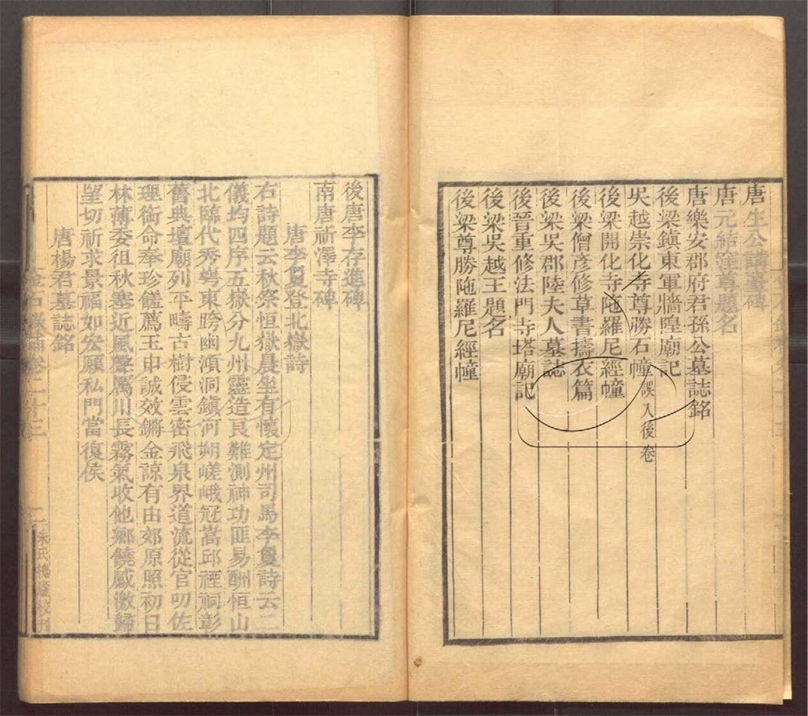 唐生公講臺碑
唐元結窪尊題名
唐樂安郡府君孫公墓誌銘
後梁鎮東軍牆隍廟記
吳越崇化寺尊勝石幢誤入後卷
後梁開化寺陁羅尼經幢
後梁僧彥修草書擣衣篇
後梁吳郡陸夫人墓誌
後晉重修法門寺塔廟記
後梁吳越王題名
後梁尊勝陁羅尼經幢
後唐李存進碑
南唐祈澤寺碑
唐李夐登北嶽詩
右詩題云秋祭恒嶽晨坐有懷定州司馬李夐詩云二
儀均四序五嶽分九州靈造良難測神功匪易酬恒山
北臨代秀崿東跨幽澒洞鎮河朔嵯峨冠嵩邱禋祠彰
舊典壇廟列平疇古樹侵雲密飛泉界道流從官叨佐
理銜命奉珍饈薦玉申誠效鏘金諒有由郊原照初日
林薄委徂秋塞近風聲厲川長霧氣收他鄉饒感激歸
望切祈求景福如宏願私門當復侯
唐楊君墓誌銘
金石錄補卷二十三
二
朱氏槐廬校刊